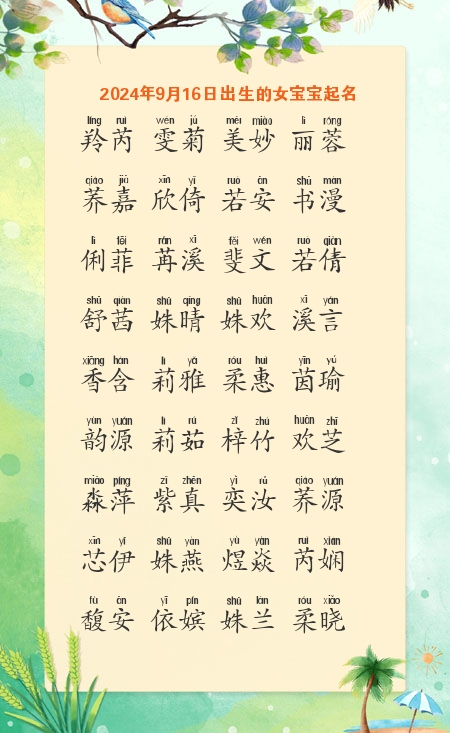 2024年9月16日出生的女宝宝起名
líng ruì wén jú měi miào lì róng
羚芮 雯菊 美妙 丽蓉
qiáo jiā xīn yǐ ruò ān shū màn
荞嘉 欣倚 若安 书漫
lì fēi rǎn xī fěi wén ruò qiàn
俐菲 苒溪 斐文 若倩
shū qiàn shū qíng shū huān xī yán
舒茜 姝晴 姝欢 溪言
xiāng hán lì yǎ róu huì yīn yú
香含 莉雅 柔惠 茵瑜
yùn yuán lì rú zǐ zhú huān zhī
韵源 莉茹 梓竹 欢芝
miǎo píng zǐ zhēn yì rǔ qiáo yuán
淼萍 紫真 奕汝 荞源
xīn yī shū yàn yù yàn ruì xián
芯伊 姝燕 煜焱 芮娴
fù ān yī pín shū lán róu xiǎo
馥安 依嫔 姝兰 柔晓